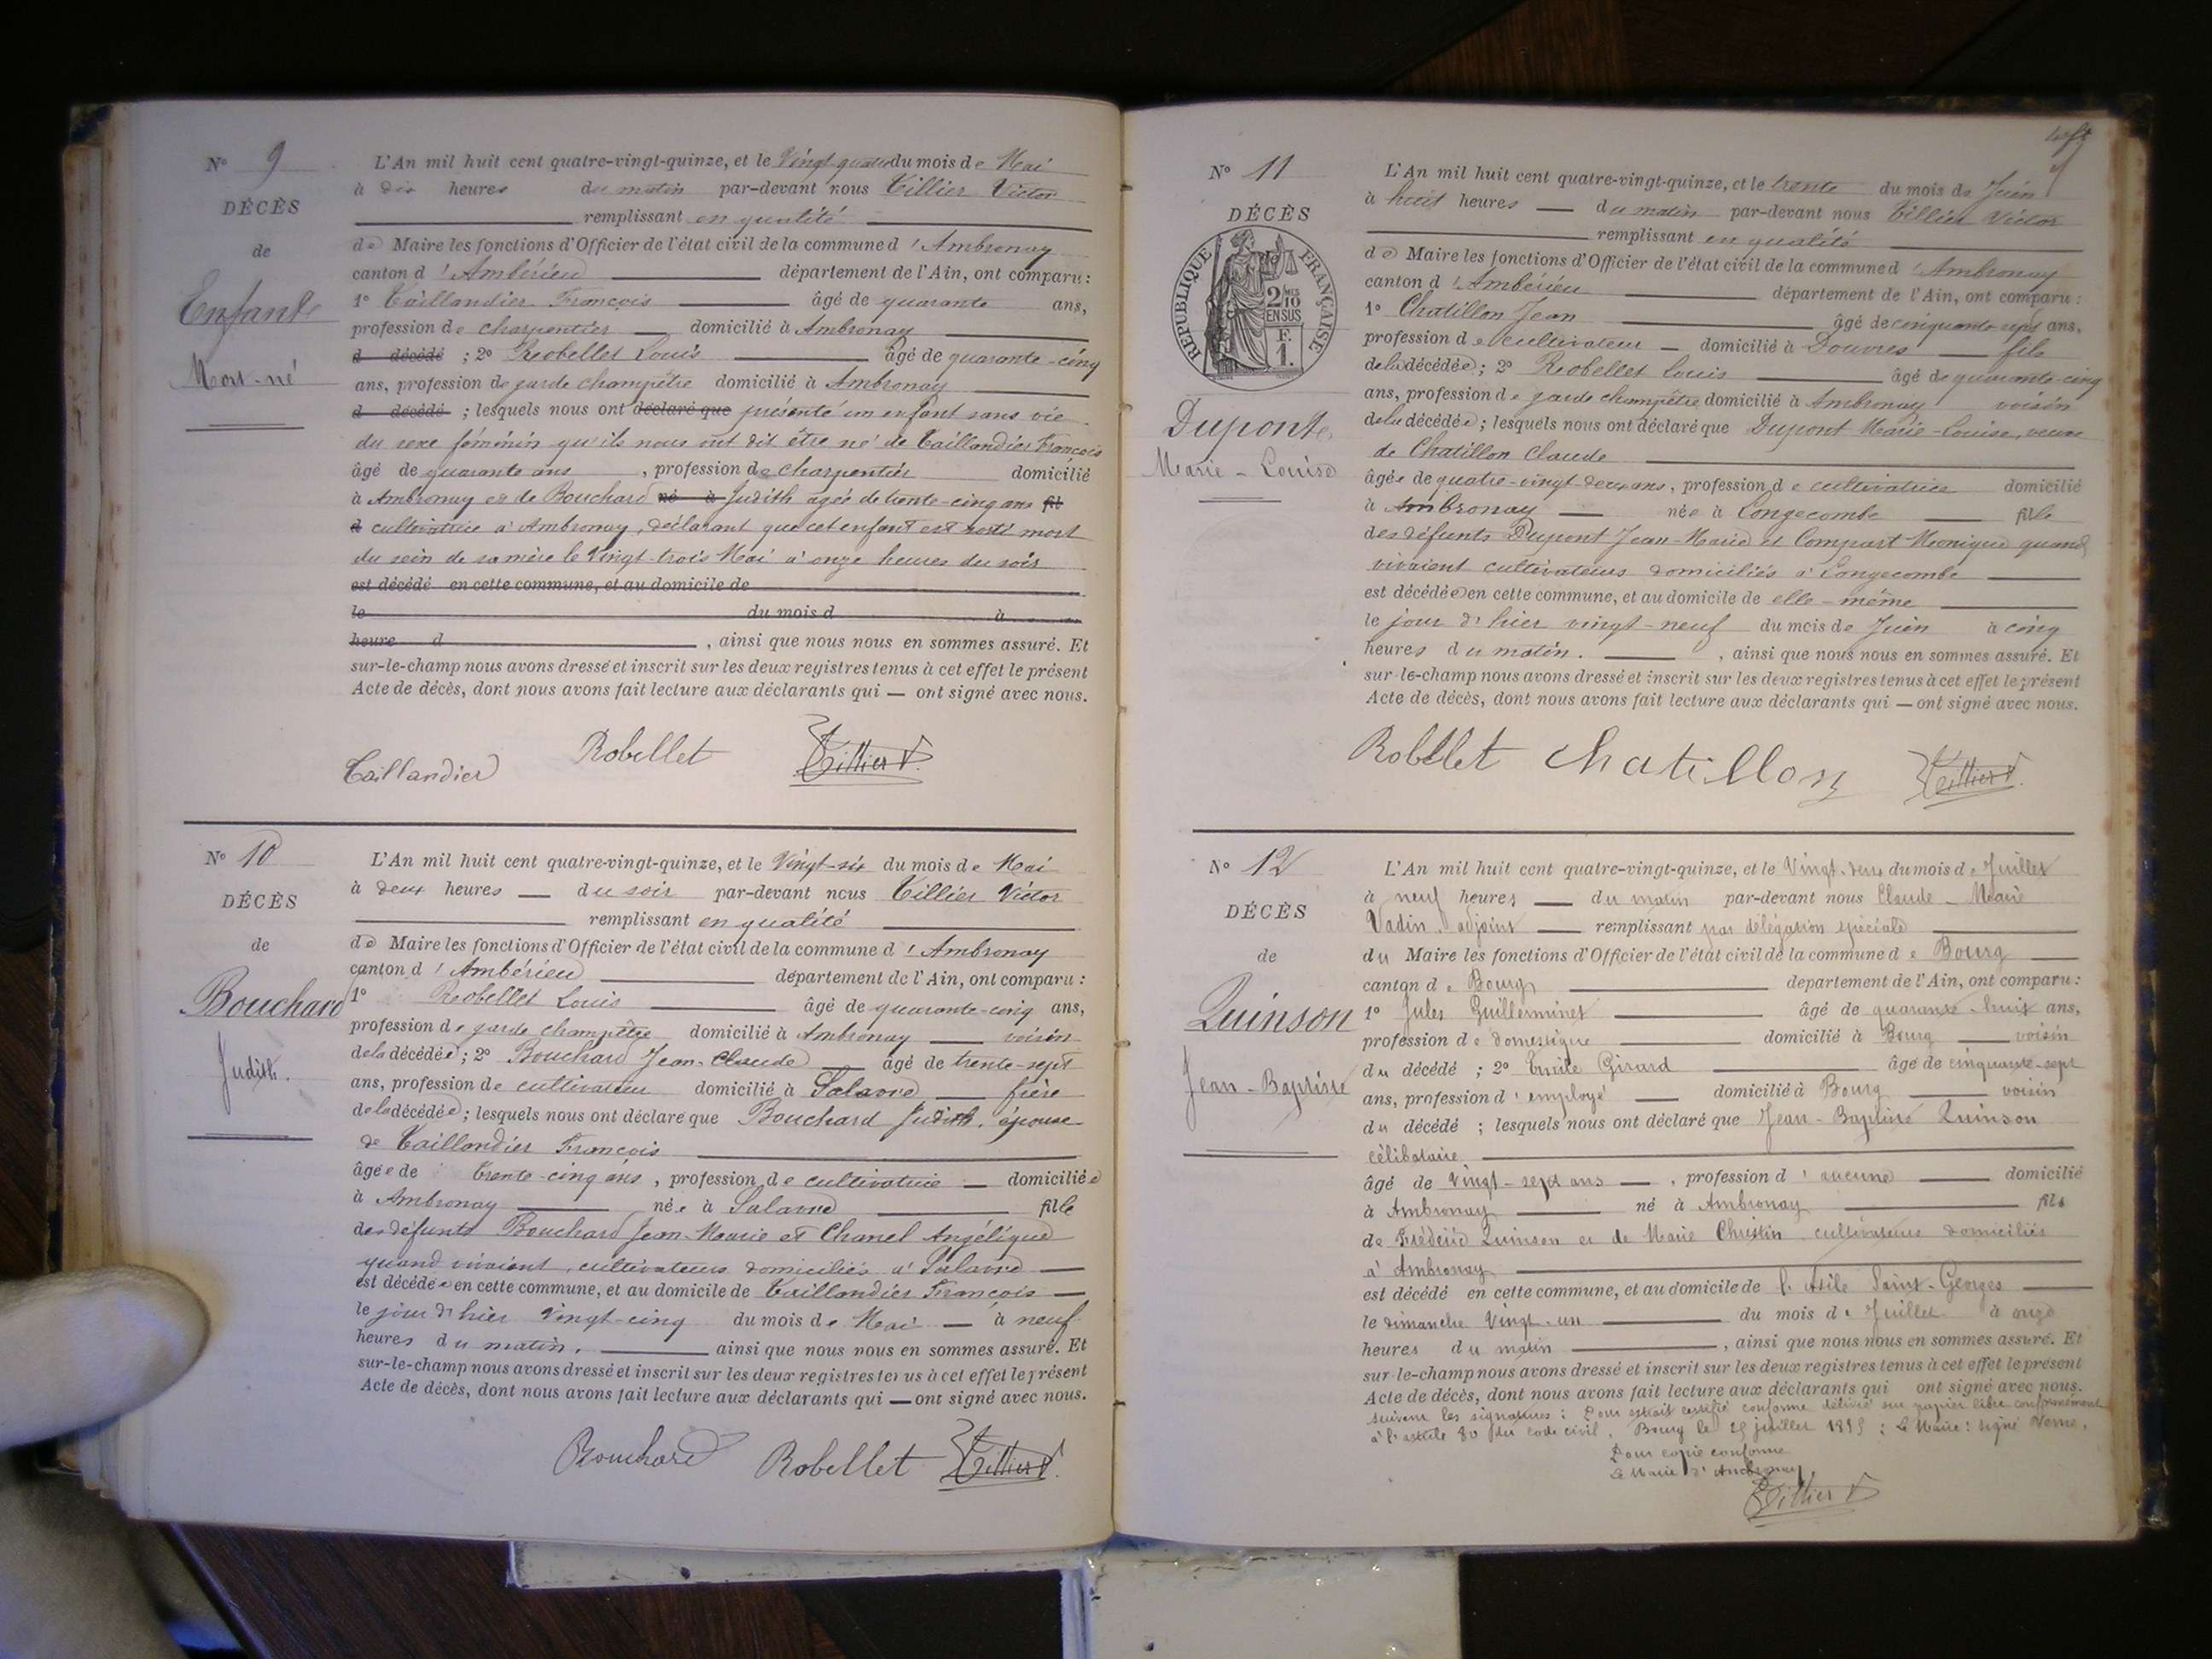 N° 9
DÉCÈS
de
Enfant
Mort-né
L'An mil huit cent quatre-vingt-quinze, et le Vingt-quatre du mois de Mai
à dix heures du matin par-devant nous Tillier Victor
remplissant en qualité
de Maire les fonctions d'Officier de l'état civil de la commune d'Ambronay
canton d'Ambérieu département de l'Ain, ont comparu :
1° Taillandier François âgé de quarante ans,
profession de charpentier domicilié à Ambronay
d décédé ; 2° Robellet Louis âgé de quarante-cinq
ans, profession de garde champêtre domicilié à Ambronay
d décédé ; lesquels nous ont déclaré que présenté un enfant sans vie
du sexe féminin qu'ils nous ont dit être né de Taillandier François
âgé de quarante ans, profession de charpentier domicilié
à Ambronay et de Bouchard né à Judith agée de trente-cinq ans fil
d cultivatrice à Ambronay, déclarant que cet enfant est sorti mort
du sein de sa mère le Vingt-trois Mai à onze heures du soir
est décédé en cette commune, et au domicile de
le du mois d à
heure d , ainsi que nous nous en sommes assuré. Et
sur-le-champ nous avons dressé et inscrit sur les deux registres tenus à cet effet le présent
Acte de décès, dont nous avons fait lecture aux déclarants qui — ont signé avec nous.
Taillandier Robellet Tillier V.
N° 10
DÉCÈS
de
Bouchard
Judith.
L'An mil huit cent quatre-vingt-quinze, et le Vingt-six du mois de Mai
à deux heures — du soir par-devant nous Tillier Victor
remplissant en qualité
de Maire les fonctions d'Officier de l'état civil de la commune d'Ambronay
canton d'Ambérieu département de l'Ain, ont comparu :
1° Robellet Louis âgé de quarante-cinq ans,
profession de garde champêtre domicilié à Ambronay — voisin
de la décédée ; 2° Bouchard Jean-Claude — âgé de trente-sept
ans, profession de cultivateur domicilié à Salavre — frère
de la décédée ; lesquels nous ont déclaré que Bouchard Judith, épouse
de Taillandier François
âgée de trente-cinq ans, profession de cultivatrice — domiciliée
à Ambronay née à Salavre fille
des défunts Bouchard Jean-Marie et Chanel Angélique
quand vivaient, cultivateurs domiciliés à Salavre —
est décédée en cette commune, et au domicile de Taillandier François —
le jour d'hier vingt-cinq du mois de Mai — à neuf
heures du matin. ainsi que nous nous en sommes assuré. Et
sur-le-champ nous avons dressé et inscrit sur les deux registres tenus à cet effet le présent
Acte de décès, dont nous avons fait lecture aux déclarants qui — ont signé avec nous.
Bouchard Robellet Tillier V.
N° 11
DÉCÈS
RÉPUBLIQUE FRANÇAISE
2/10 MES
EN SUS
1 F.
Dupont
Marie-Louise
L'An mil huit cent quatre-vingt-quinze, et le trente du mois de Juin
à huit heures — du matin par-devant nous Tillier Victor
remplissant en qualité
de Maire les fonctions d'Officier de l'état civil de la commune d'Ambronay
canton d'Ambérieu département de l'Ain, ont comparu :
1° Chatillon Jean âgé de cinquante-sept ans,
profession de cultivateur — domicilié à Douvres — fils
de la décédée ; 2° Robellet Louis âgé de quarante-cinq
ans, profession de garde champêtre domicilié à Ambronay voisin
de la décédée ; lesquels nous ont déclaré que Dupont Marie-Louise, veuve
de Chatillon Claude
âgée de quatre-vingt deux ans, profession de cultivatrice domicilié
à Ambronay — née à Longecombe — fille
des défunts Dupont Jean-Marie et Compart Monique quand
vivaient cultivateurs domiciliés à Longecombe
est décédée en cette commune, et au domicile de elle-même
le jour d'hier vingt-neuf du mois de Juin à cinq
heures du matin. , ainsi que nous nous en sommes assuré. Et
sur-le-champ nous avons dressé et inscrit sur les deux registres tenus à cet effet le présent
Acte de décès, dont nous avons fait lecture aux déclarants qui — ont signé avec nous.
Robellet Chatillon Tillier V.
N° 12
DÉCÈS
de
Quinson
Jean-Baptiste
L'An mil huit cent quatre-vingt-quinze, et le Vingt-deux du mois de Juillet
à neuf heures — du matin par-devant nous Claude-Marie
Vadin, adjoint — remplissant par délégation spéciale
du Maire les fonctions d'Officier de l'état civil de la commune de Bourg
canton de Bourg département de l'Ain, ont comparu :
1° Jules Guillerminet âgé de quarante-huit ans,
profession de domestique domicilié à Bourg — voisin
du décédé ; 2° Emile Girard âgé de cinquante-sept
ans, profession d'employé — domicilié à Bourg voisin
du décédé ; lesquels nous ont déclaré que Jean-Baptiste Quinson
célibataire
âgé de vingt-sept ans —, profession d'aucune domicilié
à Ambronay né à Ambronay fils
de Frédéric Quinson et de Marie Christin cultivateurs domiciliés
à Ambronay
est décédé en cette commune, et au domicile de l'Asile Saint-Georges
le dimanche vingt-un du mois de Juillet à onze
heures du matin , ainsi que nous nous en sommes assuré. Et
sur-le-champ nous avons dressé et inscrit sur les deux registres tenus à cet effet le présent
Acte de décès, dont nous avons fait lecture aux déclarants qui ont signé avec nous.
suivent les signatures : Pour extrait certifié conforme délivré sur papier libre conformément
à l'article 80 du code civil. Bourg le 25 juillet 1895 : Le Maire : signé
Pour copie conforme
Le Maire d'Ambronay,
Tillier V